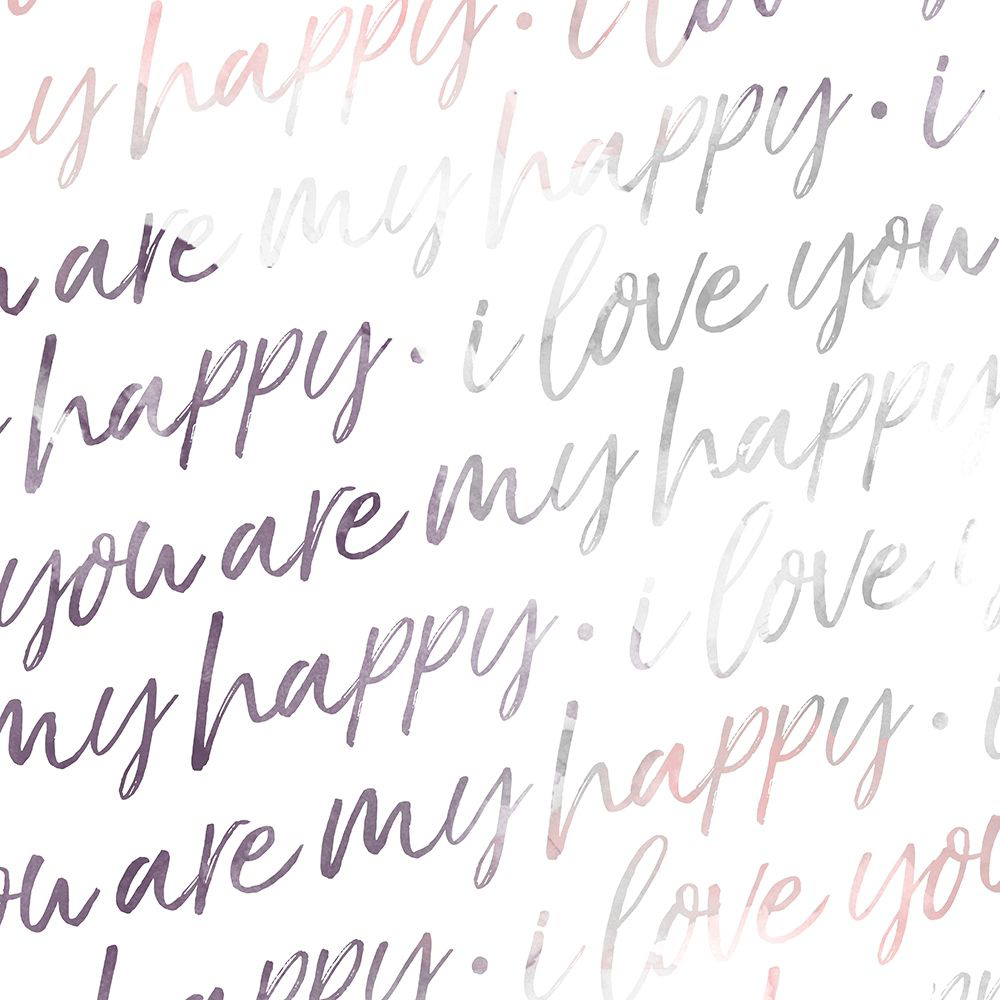 my happy. i lo
you are my happy. i
happy. i love you
you are my happy
my happy. i love
you are my happy.
happy. i love you